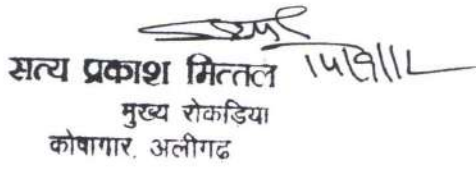 सत्य प्रकाश मित्तल 14/9/12
मुख्य रोकड़िया
कोषागार, अलीगढ़